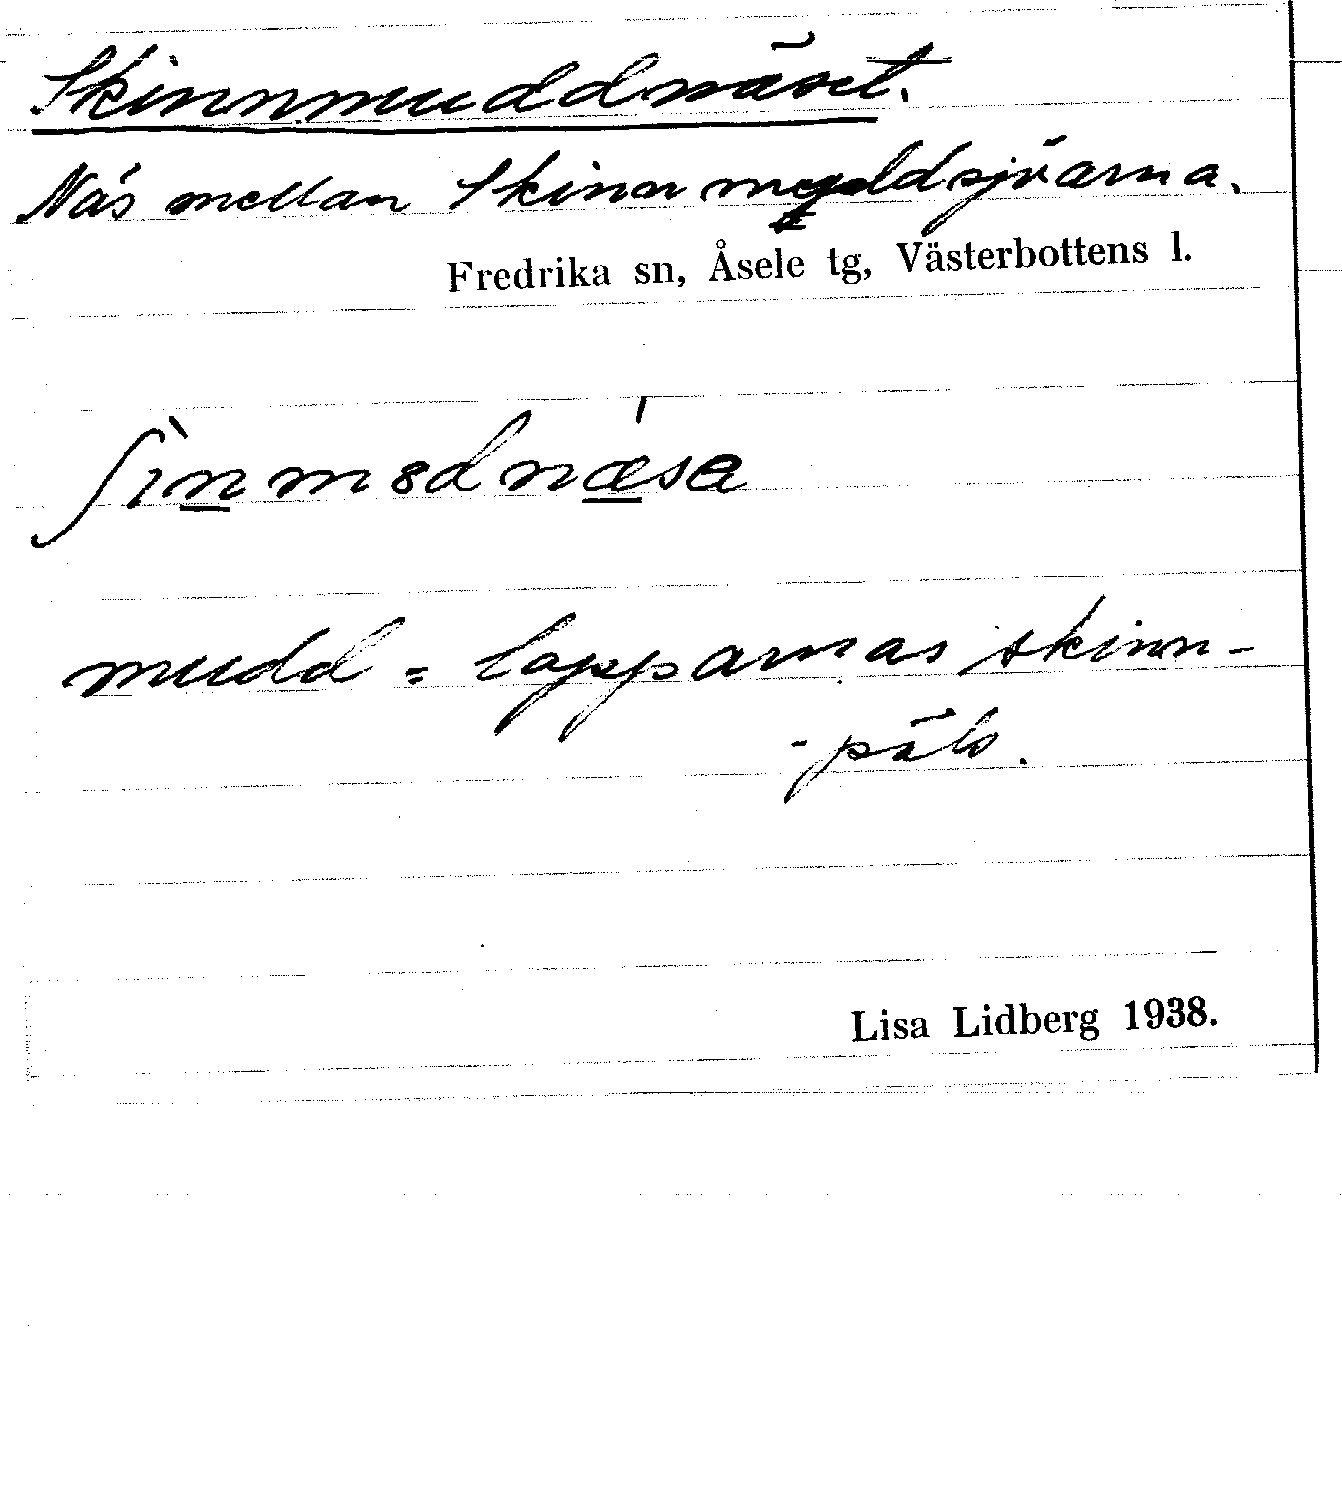 Skinnmuddnäset.
Näs mellan Skinnmuddsjöarna.
Fredrika sn, Åsele tg, Västerbottens l.
ʃìnm8dnǽsa
mudd = lapparnas skinn-
-päls.
Lisa Lidberg 1938.